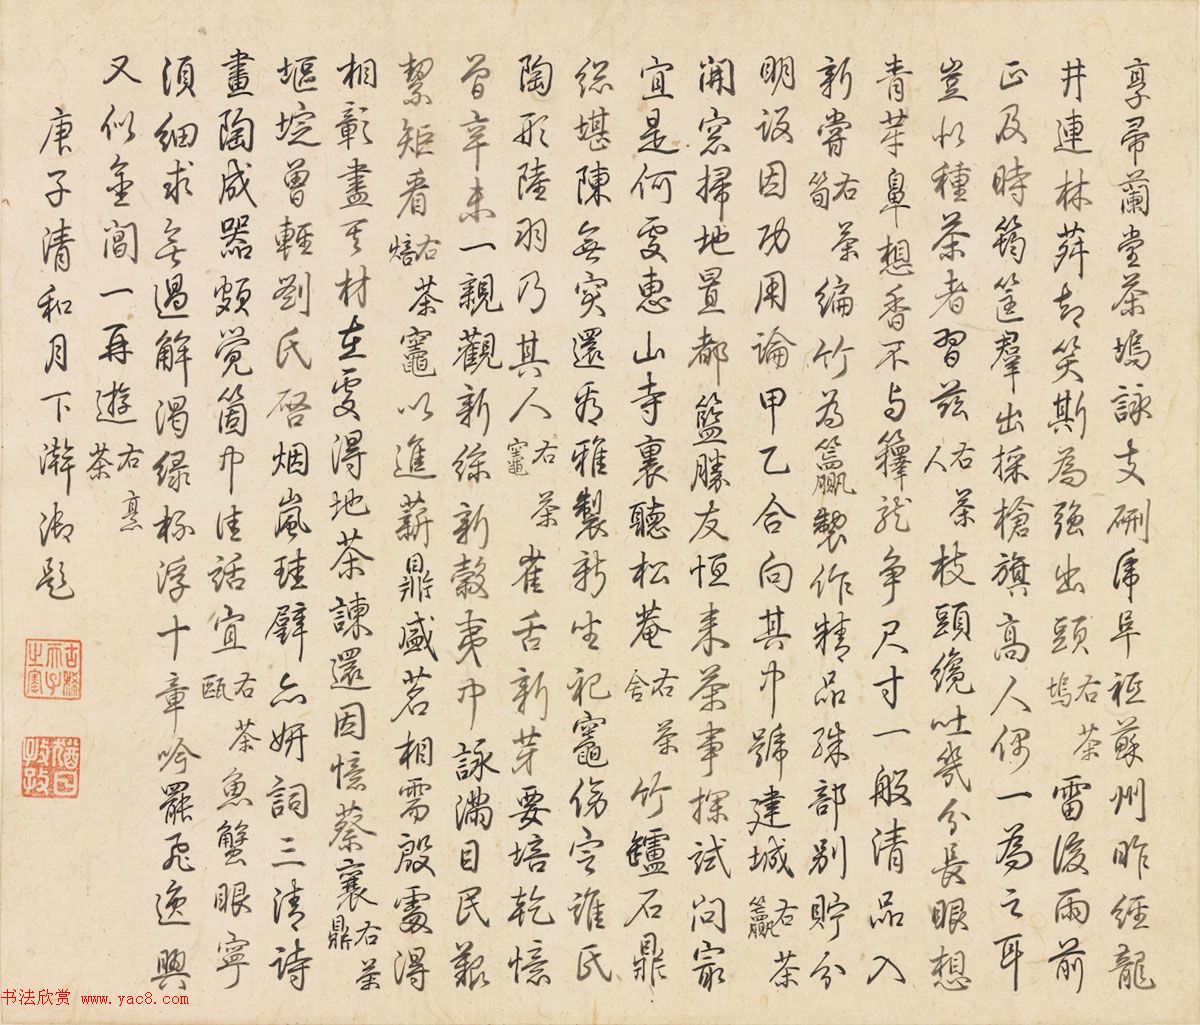 享帚蘭堂茶塢詠支硎虎阜祇蘇州昨經龍
井連林莽却笑斯為強出頭右茶塢雷後雨前
正及時筠筐羣出採槍旗高人偶一為之耳
豈似種茶者習茲右茶人枝頭纔吐幾分長眼想
青芽鼻想香不與籜龍爭尺寸一般清品入
新嘗右茶筍編竹為籯製作精品殊部別貯分
明設因功用論甲乙合向其中號建城右茶籯
開窓掃地置都籃勝友恒來茶事探試問最
宜是何處惠山寺裏聽松菴右茶舍竹罏石鼎
總堪陳無突還看雅製新坐祀竈傍定誰氏
陶形陸羽乃其人右茶竈雀舌新芽要培乾憶
曾辛未一親觀新絲新穀夷中詠滿目民艱
絜矩看右茶焙竈以進薪鼎盛茗相需殷處得
相彰盡其材在處得地茶諫還因憶蔡襄右茶鼎
堰埞曾輕劉氏啓烟嵐珪璧亦妍詞三清詩
畫陶成器頗覺箇中佳話宜右茶甌魚蟹眼寧
須細求無過解渴綠杯浮十章吟罷飛逸興
又似金閶一再遊右烹茶
庚子清和月下澣御題
古稀天子之寶
猶日孜孜
书法欣赏 www.yac8.com